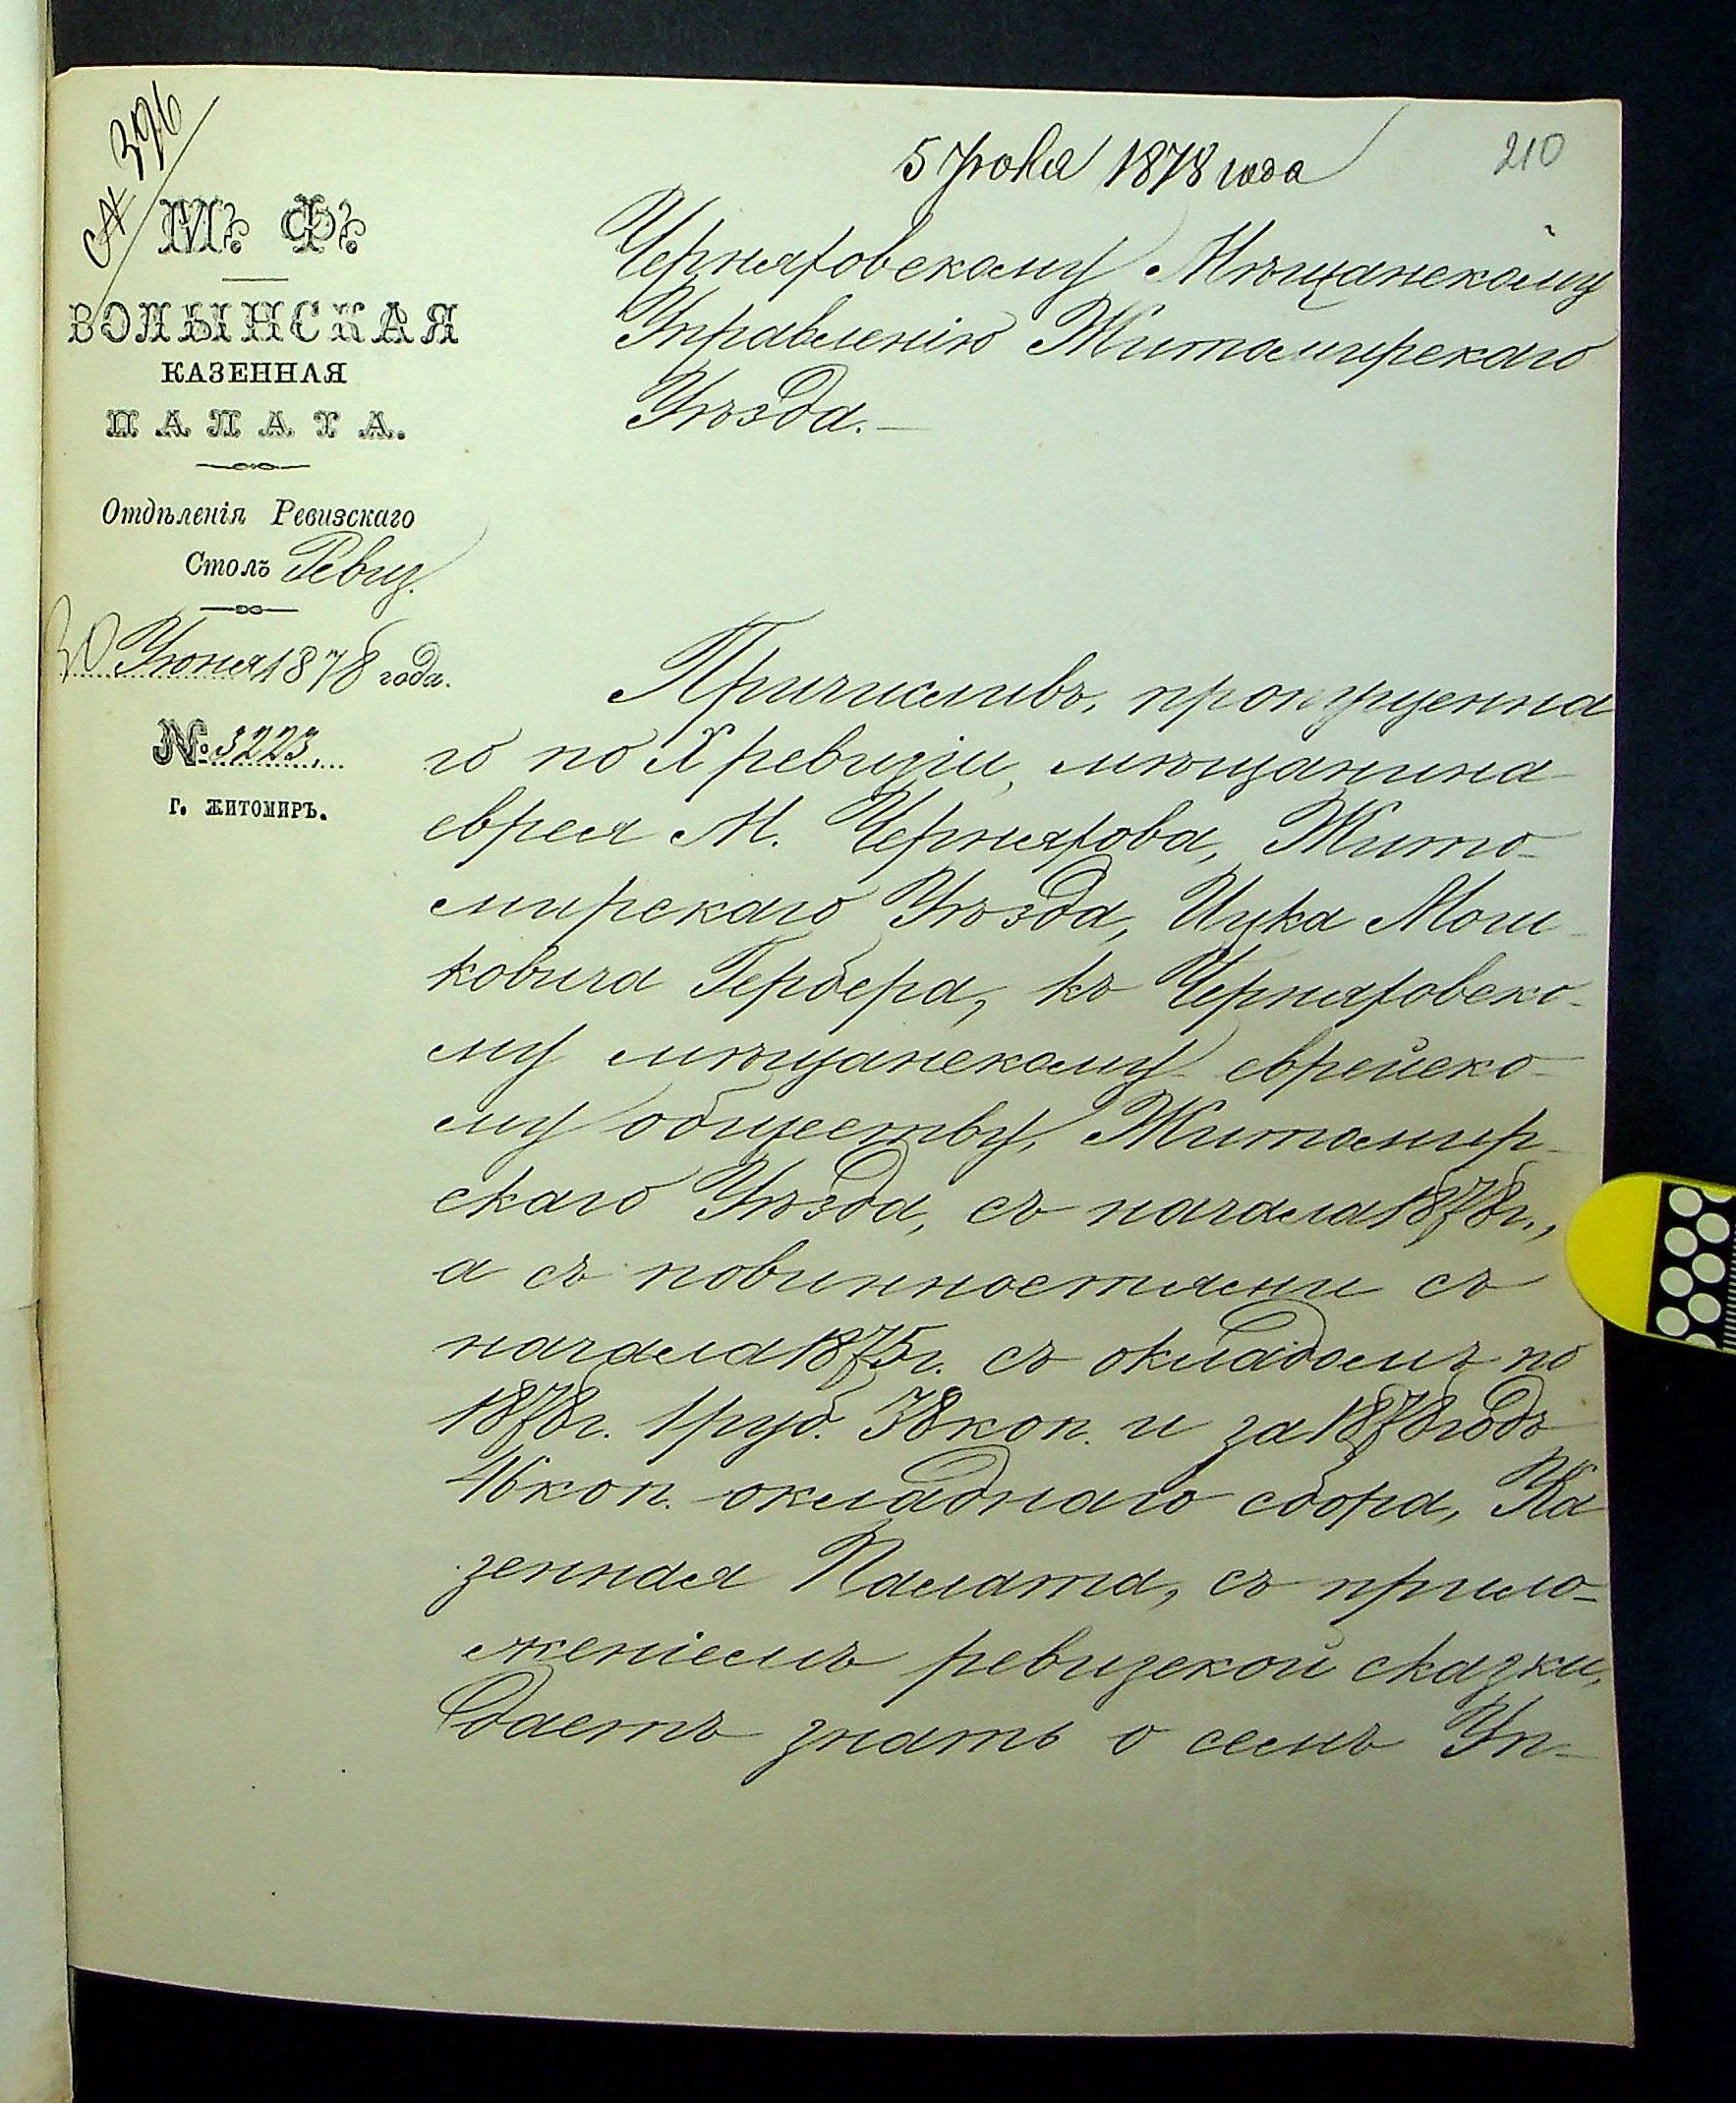 № 396
5 Июля 1878 года
210
М. Ф.
ВОЛЫНСКАЯ
КАЗЕННАЯ
ПАЛАТА.
Отдѣленія Ревизскаго
Столъ Ревиз.
30 Июня 1878 года.
№ 3223.
Г. ЖИТОМИРЪ.
Черняховскому Мѣщанскому
Управленію Житомирскаго
Уѣзда.
Причисливъ, пропущенна
го по X ревизіи, мѣщанина
еврея М. Черняхова, Жито-
мирскаго Уѣзда, Ицка Мош-
ковича Гербера, къ Черняховско-
му мѣщанскому еврейско-
му обществу, Житомир-
скаго Уѣзда, съ начала 1878 г.,
а съ повинностями съ
начала 1875 г. съ окладомъ по
1878 г. 1 руб. 38 коп. и за 1878 годъ
46 коп. окладнаго сбора, Ка
зенная Палата, съ прило-
женіемъ ревизской сказки,
даетъ знать о семъ Уп-